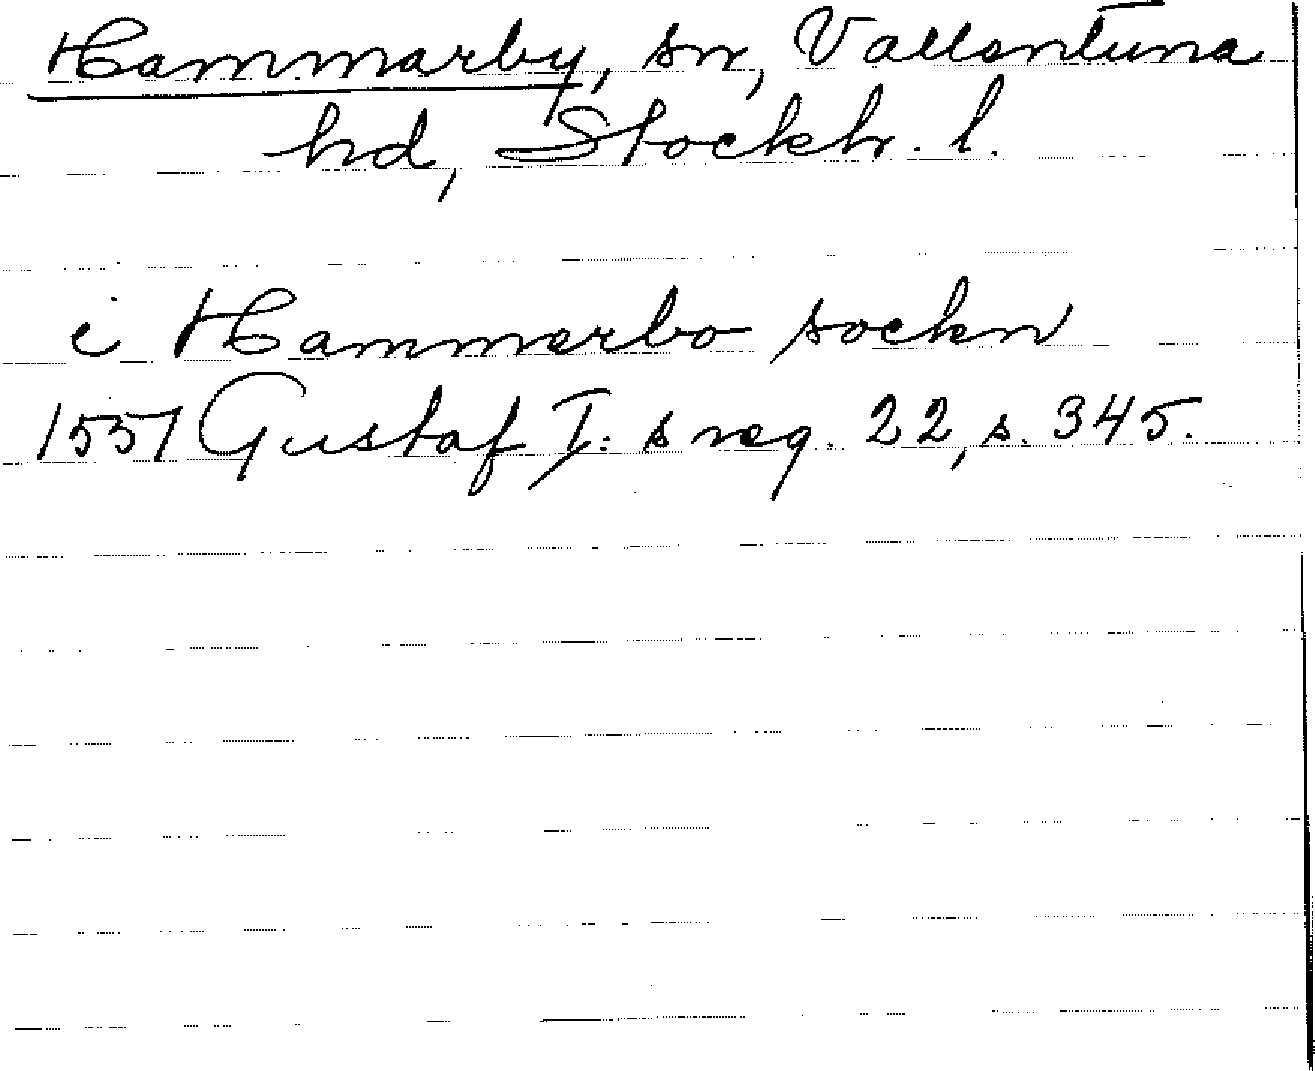 Hammarby, sn, Vallentuna
hd, Stockh. l.
i Hammarbo sockn
1551 Gustaf I: s reg. 22, s. 345.